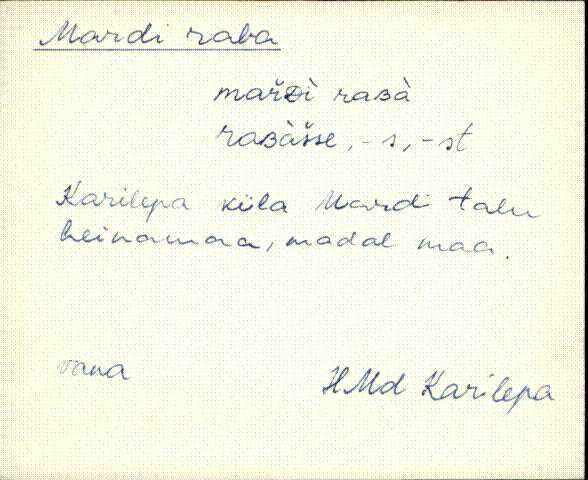 Mardi raba
mařᴅì raʙà
raʙàsse, -s, -st
Karilepa küla Mardi talu
heinamaa, madal maa.
vana
HMd Karilepa